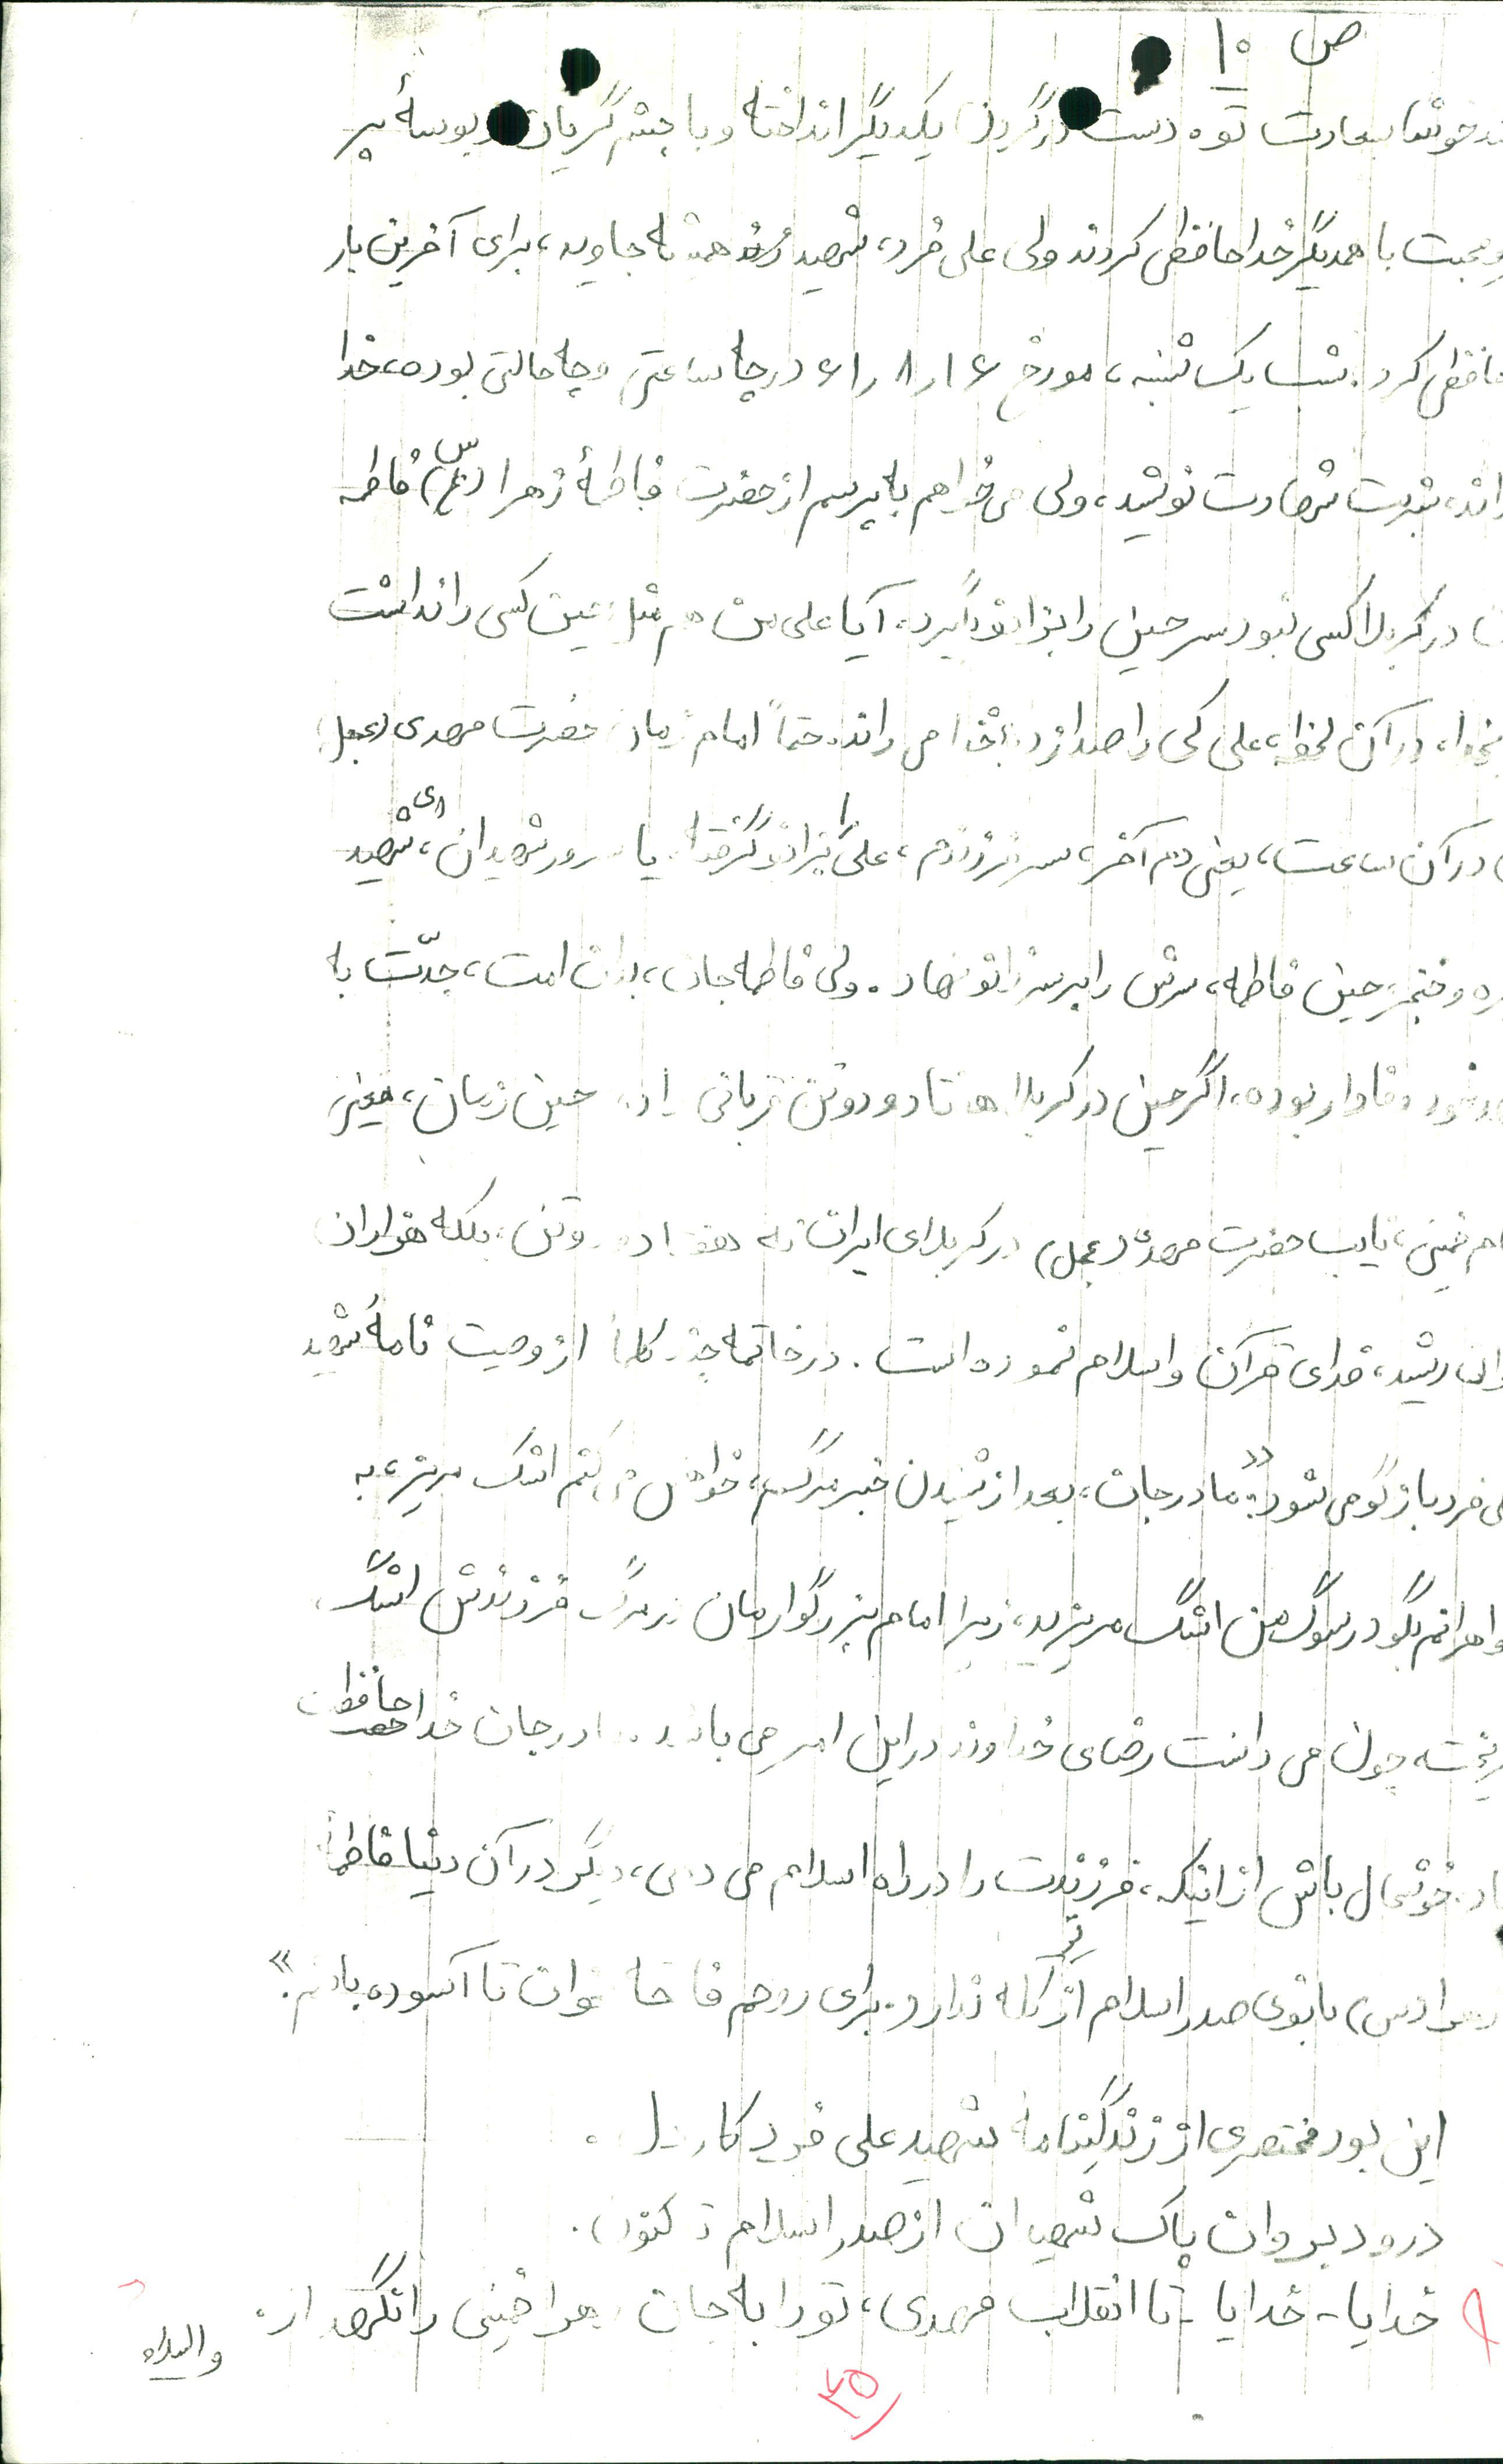 ص ۱۰
خوشا سعادت تو. دست در گردن یکدیگر انداخته و با چشم گریان و بوسهٔ پر
محبت با همدیگر خداحافظی کردند ولی علی فرد، شهید همیشه جاوید، برای آخرین بار
حافظی کرد. شب یک شنبه، مورخ ۱۶ ر ۸ ر ۶۱ در چه ساعتی و چه حالتی بوده، خدا
داند، شربت شهادت نوشید، ولی می خواهم به پرسم از حضرت فاطمهٔ زهرا (س) فاطمه
در کربلا کسی نبود سر حسین را بزانو گیرد، آیا علی من هم مثل حسین کسی را نداشت
در آن لحظه، علی کی را صدا زد، خدا می داند. حتماً امام زمان حضرت مهدی (عجل)
در آن ساعت، یعنی دم آخر، سر فرزندم، علی را بزانو گرفته. یا سرور شهیدان، ای شهید
حسین فاطمه، سرش را بر سر زانو نهاد. ولی فاطمه جان، بدان امت، جدّت به
خود وفادار بوده، اگر حسین در کربلا هفتاد و دو تن قربانی داد، حسین زمان، یعنی
خمینی، نایب حضرت مهدی (عجل) در کربلای ایران نه هفتاد و دو تن، بلکه هزاران
رشید، فدای قرآن و اسلام نموده است. در خاتمه چند کلمه از وصیت نامهٔ شهید
فرد بازگو می شود: «مادر جان، بعد از شنیدن خبر مرگم، خواهش می کنم اشک مریز، به
خواهرانم بگو در سوگ من اشک مریزید، زیرا امام بزرگوارمان در مرگ فرزندش اشک
چون می دانست رضای خداوند در این امر می باشد. مادر جان خدا حافظت
باد. خوشحال باش از اینکه، فرزندت را در راه اسلام می دهی، دیگر در آن دنیا فاطمهٔ
(س) بانوی صدر اسلام از تو گله ندارد. برای روحم فاتحه بخوان تا آسوده باشم.»
این بود مختصری از زندگینامهٔ شهید علی فرد
درود بر روان پاک شهیدان از صدر اسلام تا کنون.
خدایا - خدایا - تا انقلاب مهدی، تو را به جان زهرا خمینی را نگهدار.
والسلام
۲۵